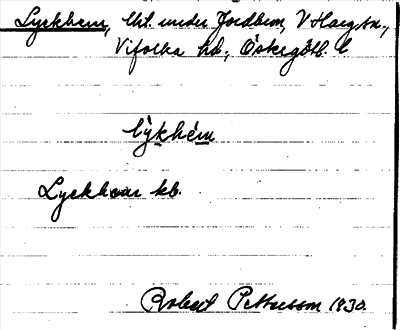 Lyckhem, lht. under Jordhem, V Harg sn.,
Vifolka hd., Östergötl. l.
lỳkhé̱m
Lyckhem kb.
Robert Pettersson 1930.